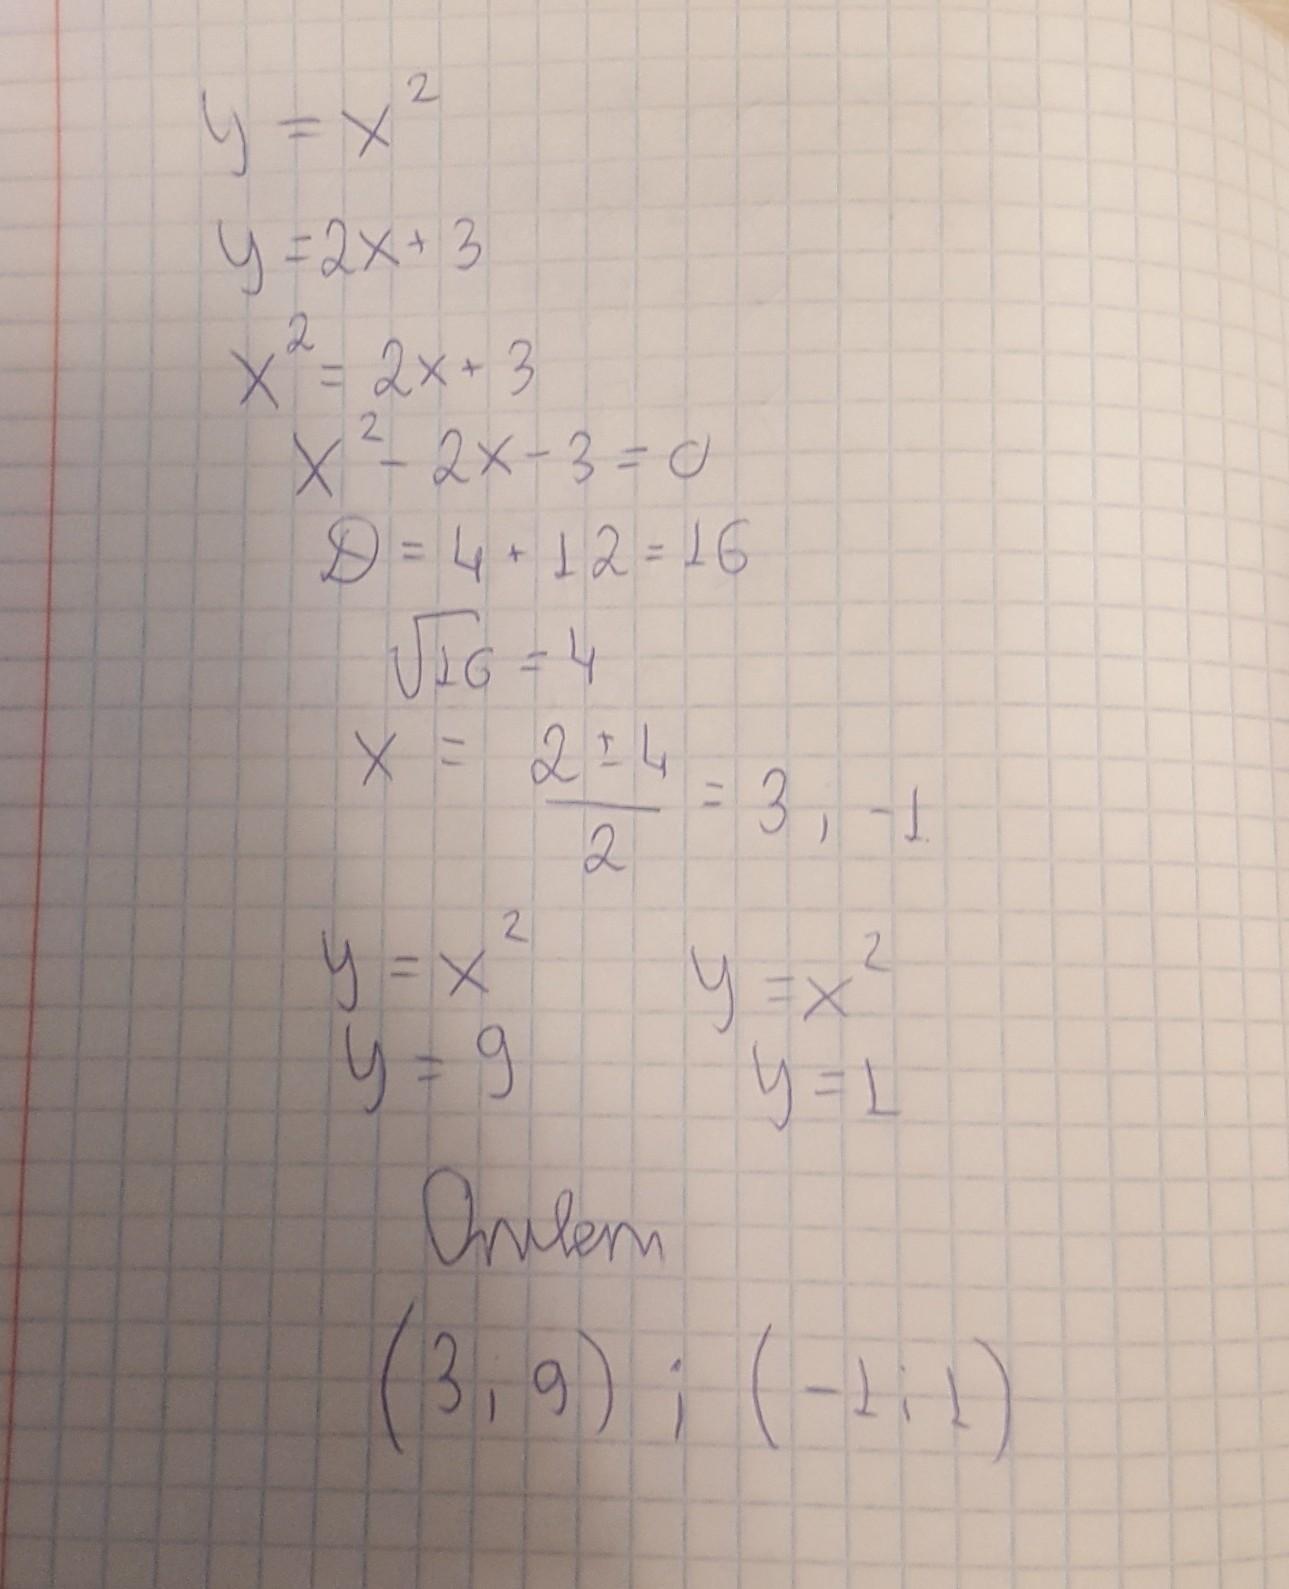 y = x²
y = 2x + 3
x² = 2x + 3
x² - 2x - 3 = 0
D = 4 + 12 = 16
√16 = 4
x = (2 ± 4)/2 = 3; -1
y = x² y = x²
y = 9 y = 1
Ответ
(3; 9); (-1; 1)